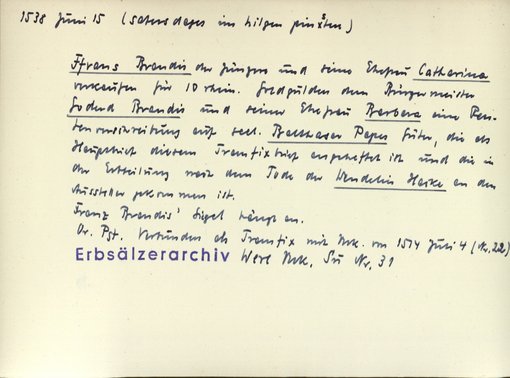 1538 Juni 15 (satersdages im hilgen pinxten)
Ffrans Brandis der Jüngere und seine Ehefrau Catharina
verkaufen für 10 rhein. Goldgulden dem Bürgermeister
Godert Brandis und seiner Ehefrau Barbera eine Ren-
tenverschreibung auf seel. Balthasar Papes Güter, die als
Hauptbrief diesem Transfixbrief angeheftet ist und die in
der Erbteilung nach dem Tode der Wendelin Harke an den
Aussteller gekommen ist.
Franz Brandis' Siegel hängt an.
Or. Pgt. Verbunden als Transfix mit Urk. von 1514 Juni 4 (Nr. 22)
Erbsälzerarchiv Werl Urk. Nr. 31